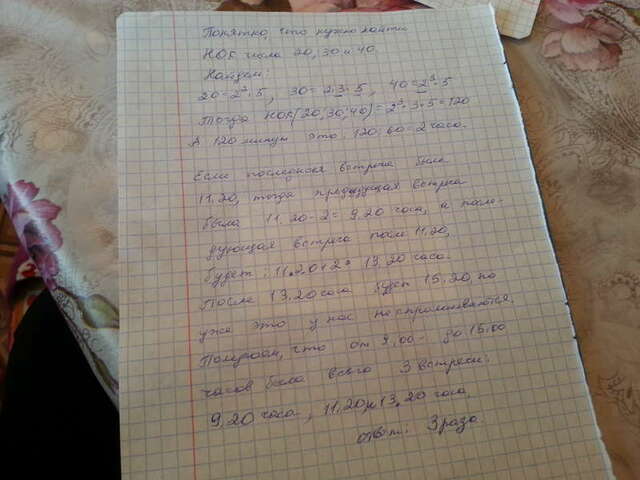 Понятно, что нужно найти
НОК числа 20, 30 и 40.
Найдем:
20=2²·5, 30=2·3·5, 40=2³·5
Тогда НОК(20;30;40)=2³·3·5=120
А 120 минут это 120:60=2 часа.
Если последняя встреча была
11.20, тогда предыдущая встреча
была 11.20-2=9.20 часа, а после-
дующая встреча после 11.20,
будет: 11.20+2=13.20 часа.
После 13.20 часа будет 15.20, но
уже это у нас не спрашивается.
Получаем, что от 9.00- до 15.00
часов было всего 3 встречи:
9.20 часа, 11.20 и 13.20 часа.
ответ: 3 раза